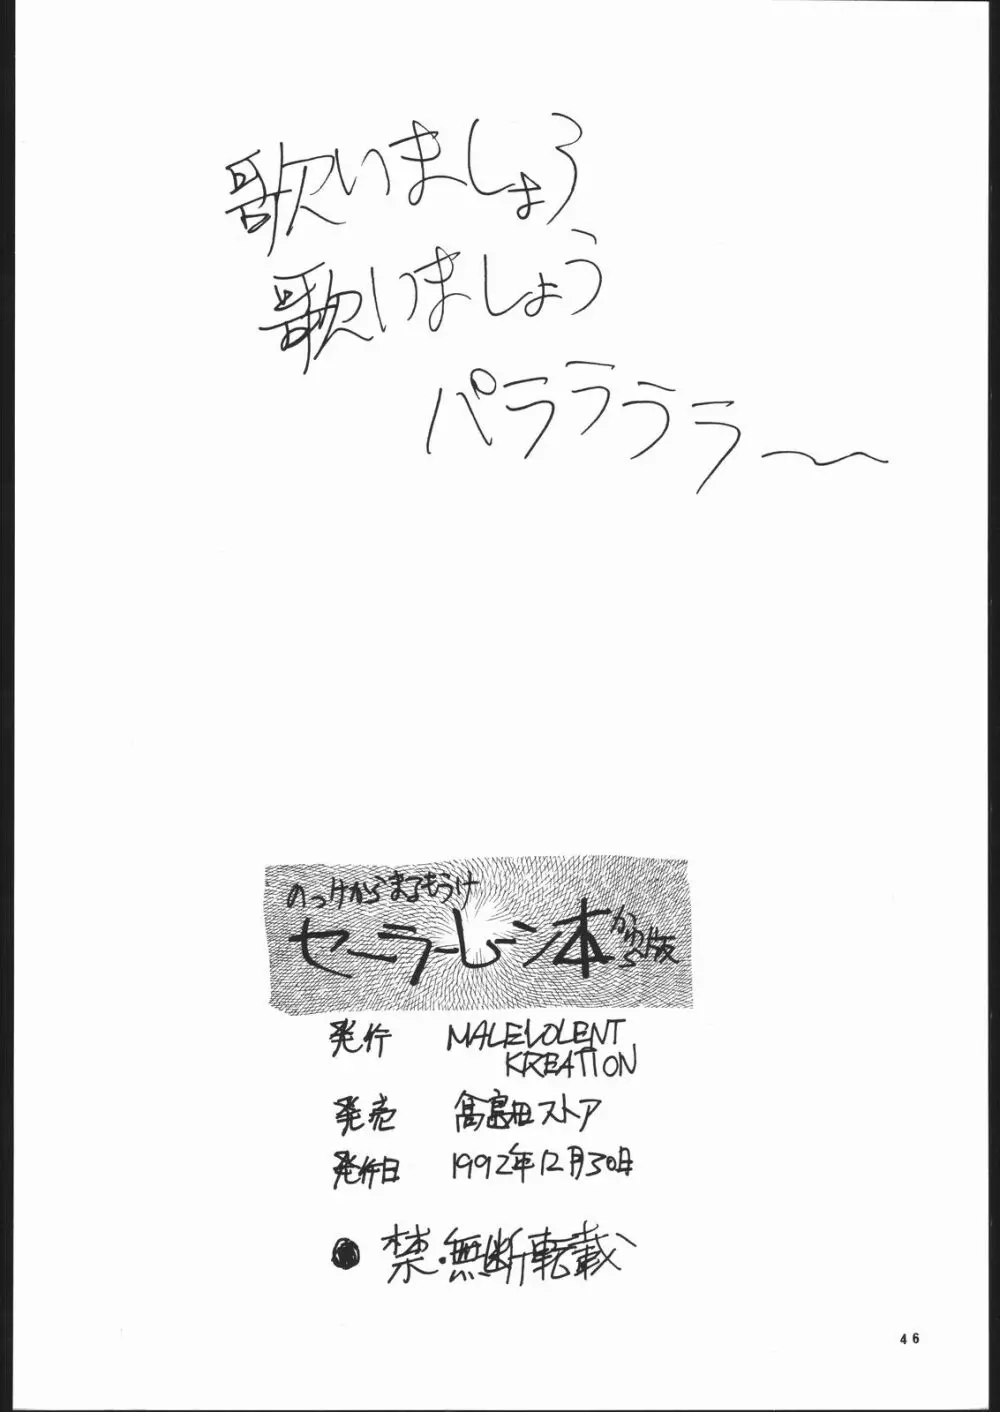 歌いましょう
歌いましょう
パラララララ〜
のっけからまるもうけ
セーラームーン本
かわら版
発行 MALEVOLENT
KREATION
発売 髙島田ストア
発行日 1992年12月30日
●禁・無断転載
46